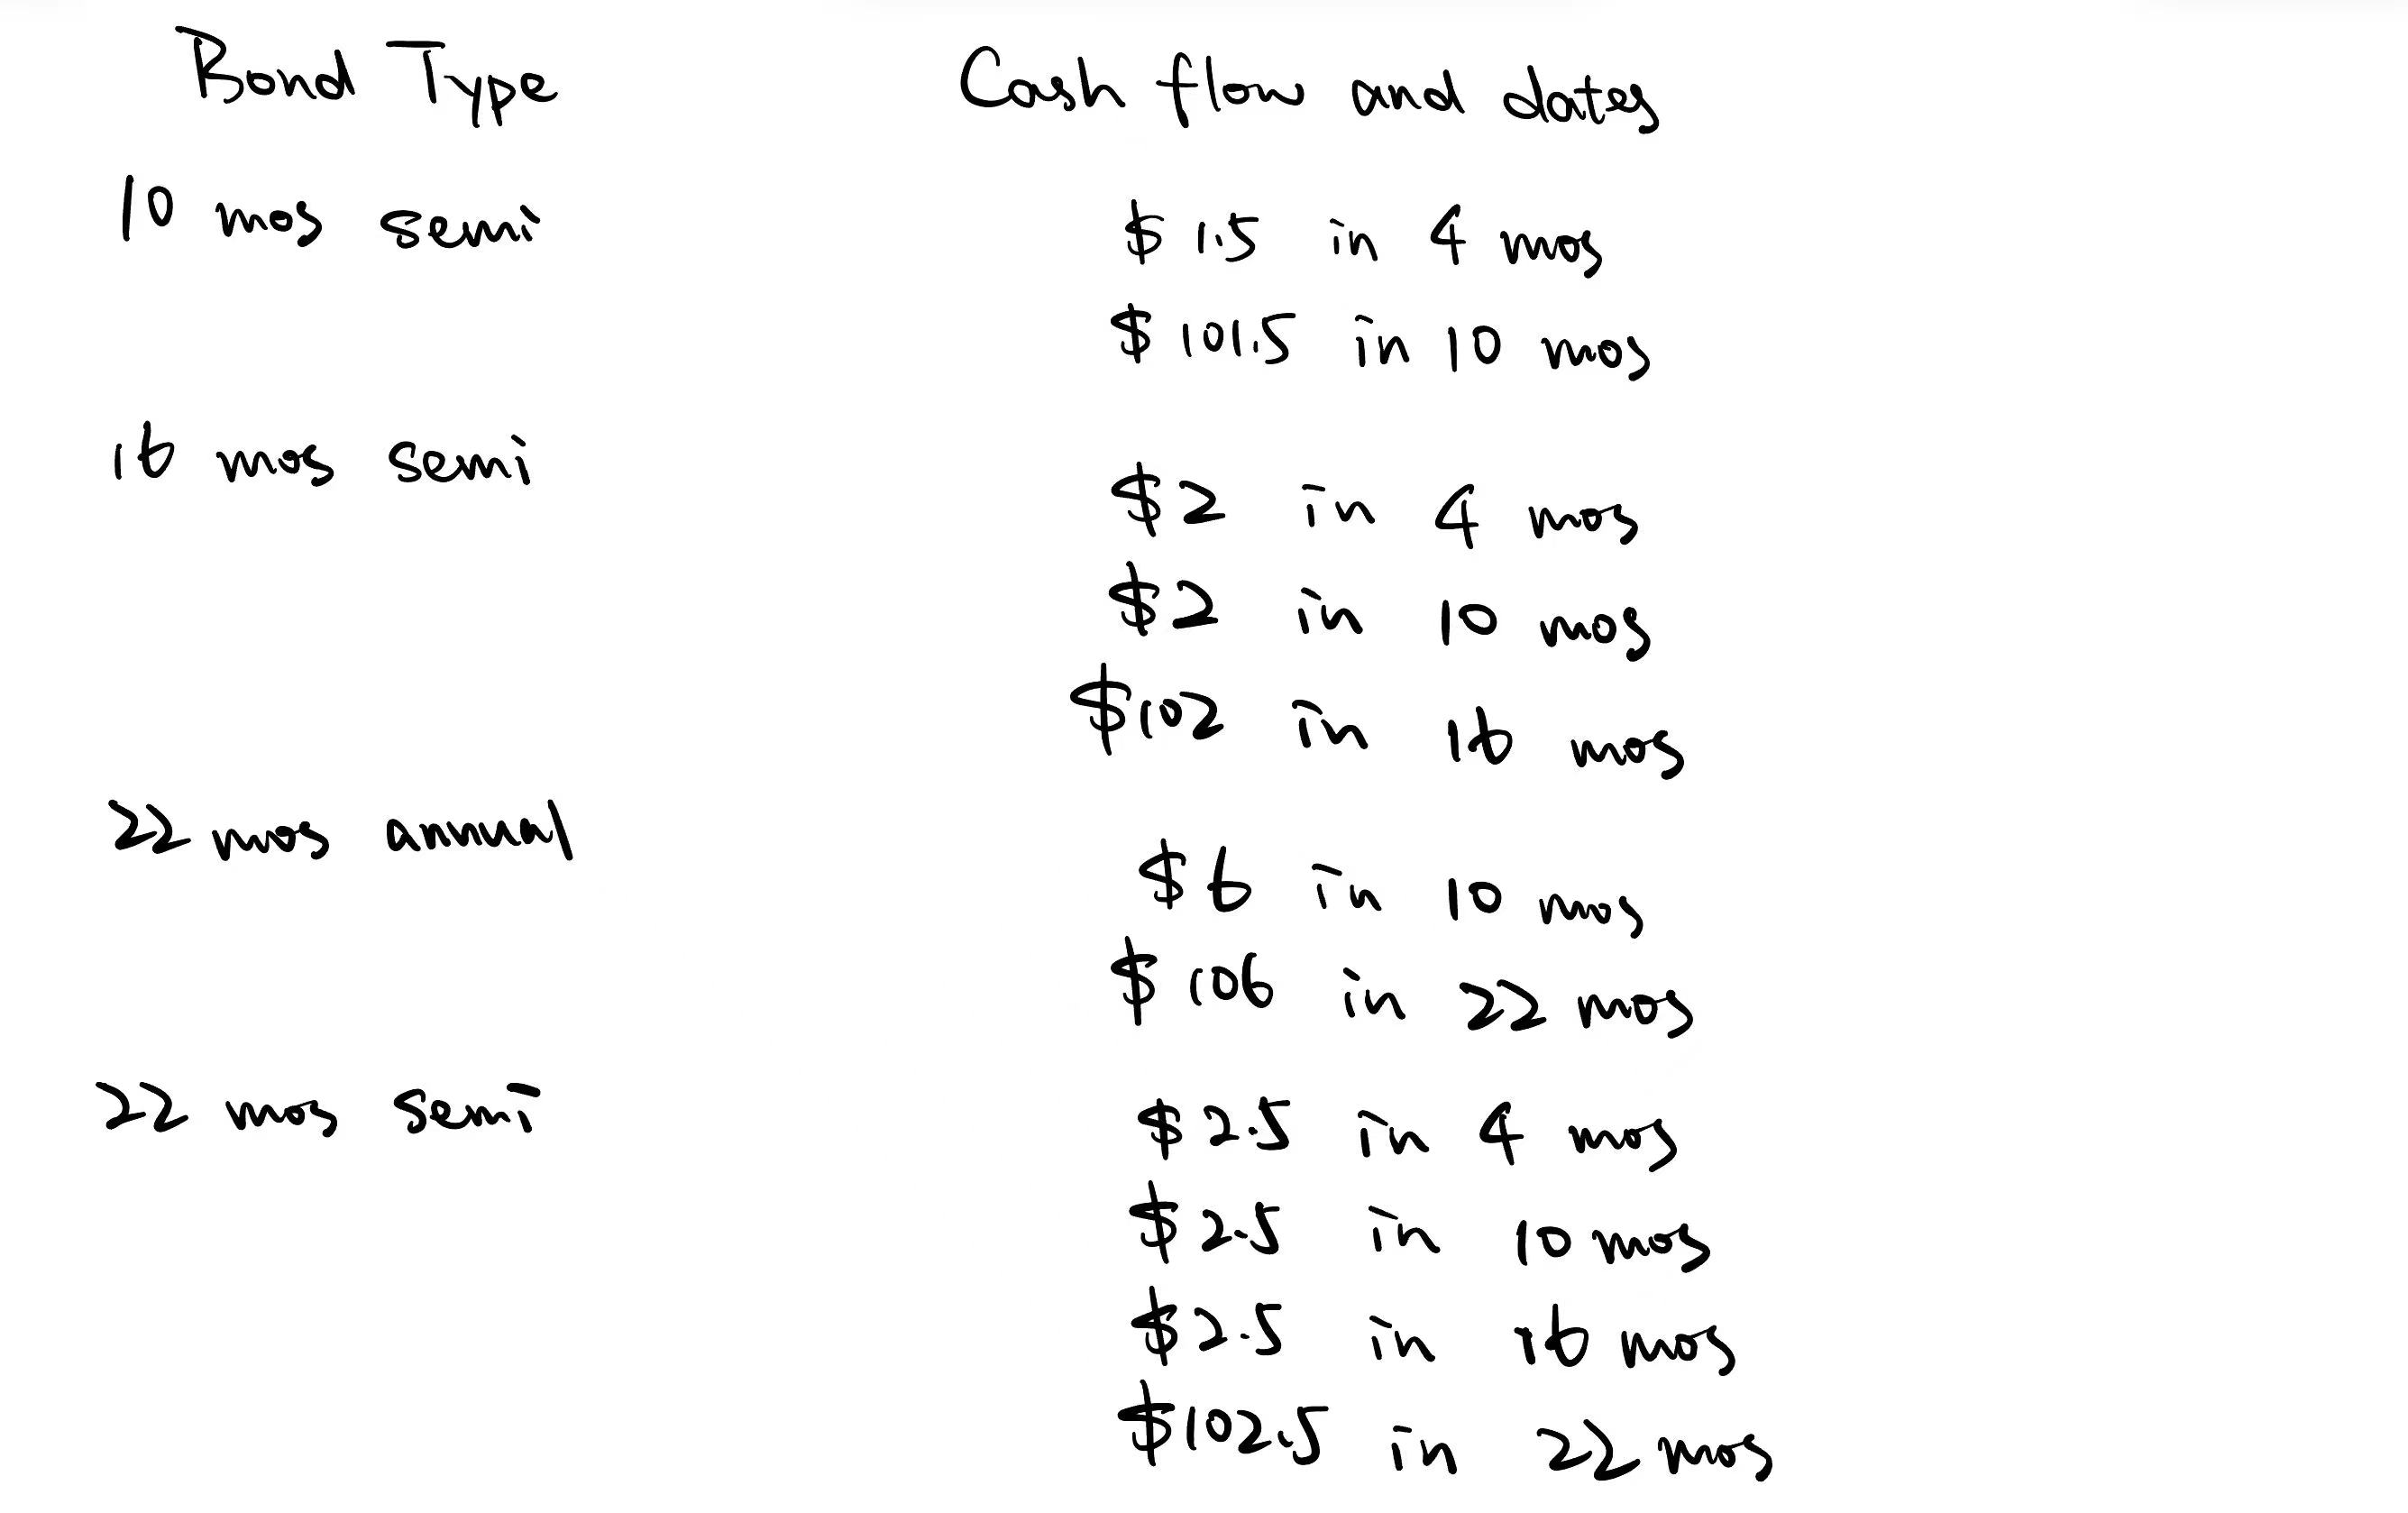 Bond Type Cash flow and dates
10 mos semi $ 1.5 in 4 mos
$ 101.5 in 10 mos
16 mos semi
$2 in 4 mos
$2 in 10 mos
$102 in 16 mos
22 mos annual
$6 in 10 mos
$ 106 in 22 mos
22 mos semi $ 2.5 in 4 mos
$ 2.5 in 10 mos
$ 2.5 in 16 mos
$102.5 in 22 mos